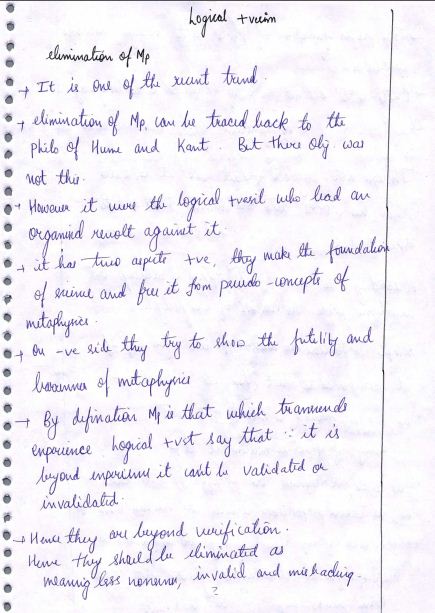 Logical +vecim
elimination of Mp
→ It is one of the recent trend.
→ elimination of Mp. can be traced back to the
philo of Hume and Kant. But there Obj. was
not this.
→ However it were the logical +vesil who lead an
organised revolt against it.
→ it has two aspects +ve, they make the foundation
of science and free it from pseudo-concepts of
metaphysics.
→ On -ve side they try to show the futility and
barrenness of metaphysics
→ By defination Mp is that which transcends
experience. Logical +vst say that ∵ it is
beyond experience it can't be validated or
invalidated.
→ Hence they are beyond verification.
Hence they should be eliminated as
meaning less nonsense, invalid and misleading.
2